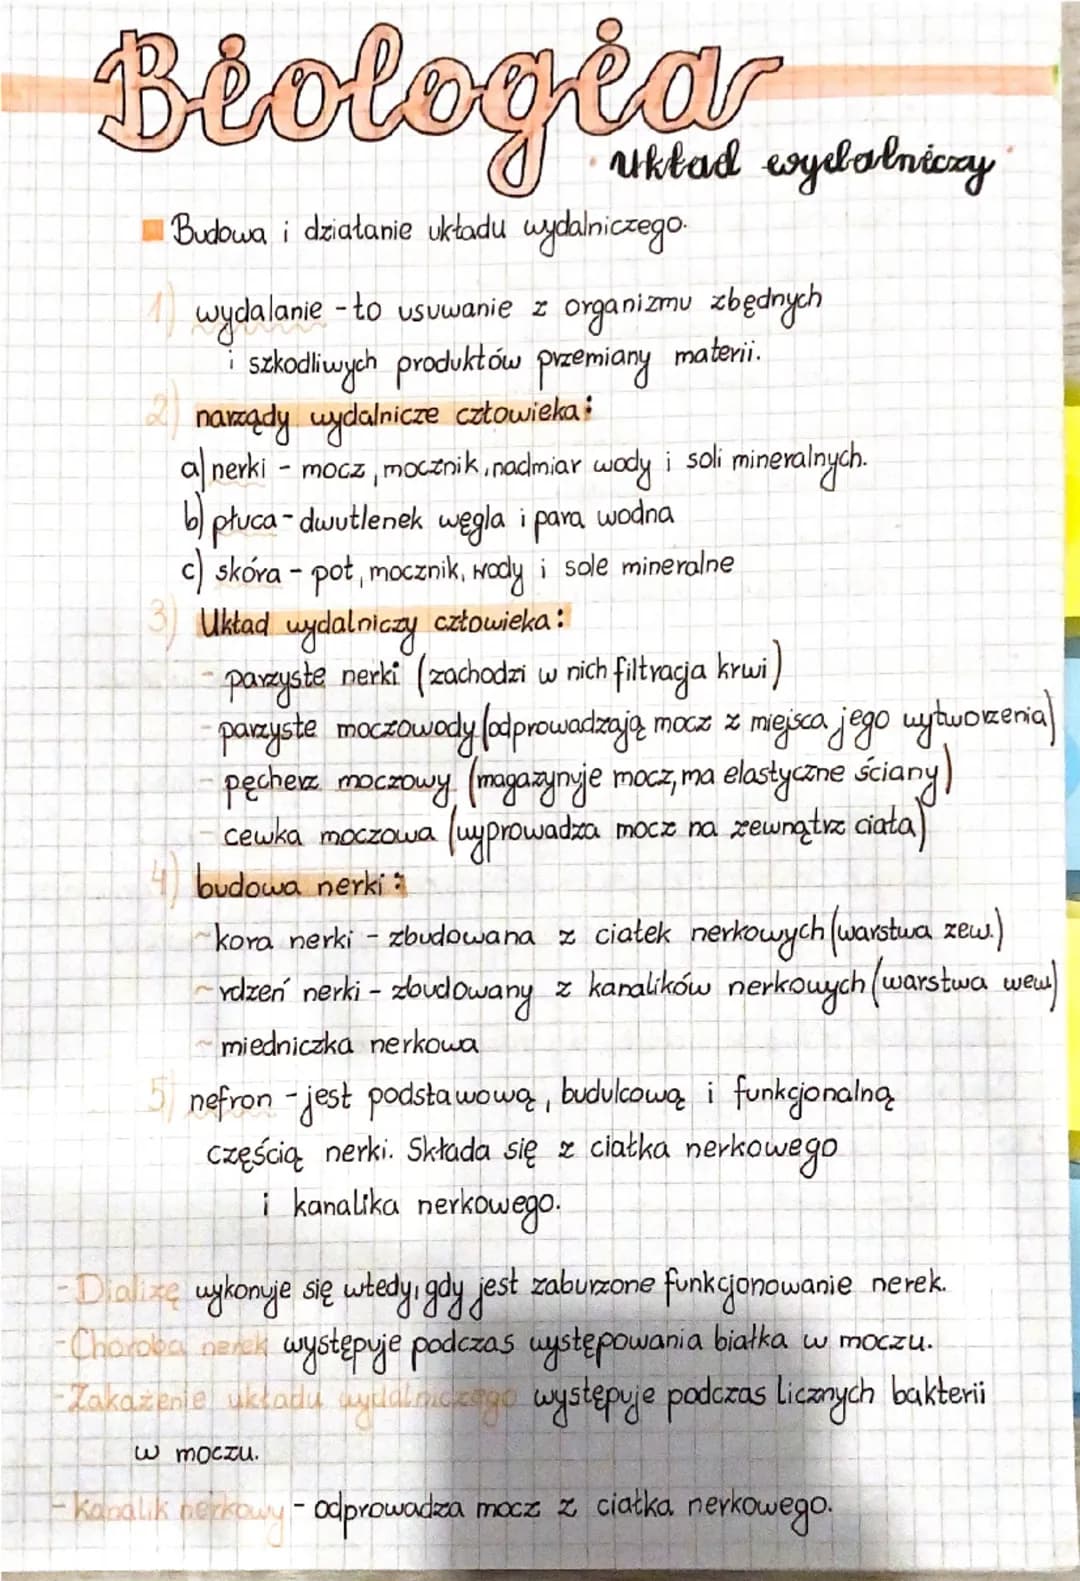 Biologia
· układ wydalniczy ·
Budowa i działanie układu wydalniczego.
1) wydalanie - to usuwanie z organizmu zbędnych
i szkodliwych produktów przemiany materii.
2) narządy wydalnicze człowieka:
a) nerki - mocz, mocznik, nadmiar wody i soli mineralnych.
b) płuca - dwutlenek węgla i para wodna
c) skóra - pot, mocznik, wody i sole mineralne
3) Układ wydalniczy człowieka:
- parzyste nerki (zachodzi w nich filtracja krwi)
- parzyste moczowody (odprowadzają mocz z miejsca jego wytworzenia)
- pęcherz moczowy (magazynuje mocz, ma elastyczne ściany)
- cewka moczowa (wyprowadza mocz na zewnątrz ciała)
4) budowa nerki:
~ kora nerki - zbudowana z ciałek nerkowych (warstwa zew.)
~ rdzeń nerki - zbudowany z kanalików nerkowych (warstwa wew)
~ miedniczka nerkowa
5) nefron - jest podstawową, budulcową i funkcjonalną
częścią nerki. Składa się z ciałka nerkowego
i kanalika nerkowego.
- Dializę wykonuje się wtedy, gdy jest zaburzone funkcjonowanie nerek.
- Choroba nerek występuje podczas występowania białka w moczu.
- Zakażenie układu wydalniczego występuje podczas licznych bakterii
w moczu.
- Kanalik nerkowy - odprowadza mocz z ciałka nerkowego.